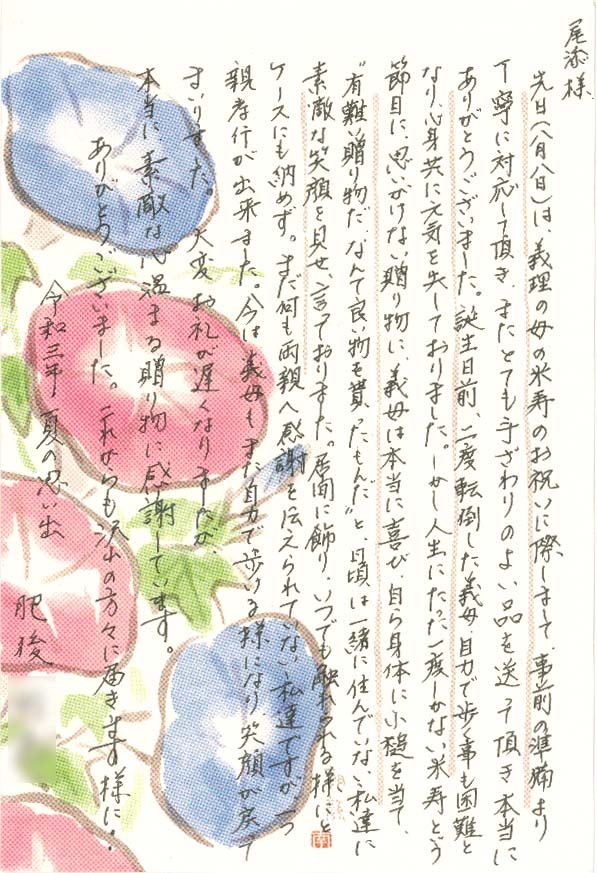 尾添様
先日(八月八日)は、義理の母の米寿のお祝いに際しまして、事前の準備より
丁寧に対応して頂き、またとても手ざわりのよい品を送って頂き本当に
ありがとうございました。誕生日前、二度転倒した義母、自力で歩く事も困難と
なり、心身共に元気を失しておりました。しかし人生にたった一度しかない米寿という
節目に、思いがけない贈り物に、義母は本当に喜び、自ら身体に小槌を当て、
"有難い贈り物だ、なんて良い物を貰ったもんだ"と、日頃は一緒に住んでいない私達に
素敵な笑顔を見せ、言っておりました。居間に飾り、いつでも触れられる様にと
ケースにも納めず。まだ何も両親へ感謝を伝えられていない私達ですが、一つ
親孝行が出来ました。今は義母もまた自力で歩ける様になり笑顔が戻って
まいりました。大変お礼が遅くなりましたが、
本当に素敵な心温まる贈り物に感謝しています。
ありがとうございました。これからも沢山の方々に届きます様に!
令和三年 夏の思い出
肥後